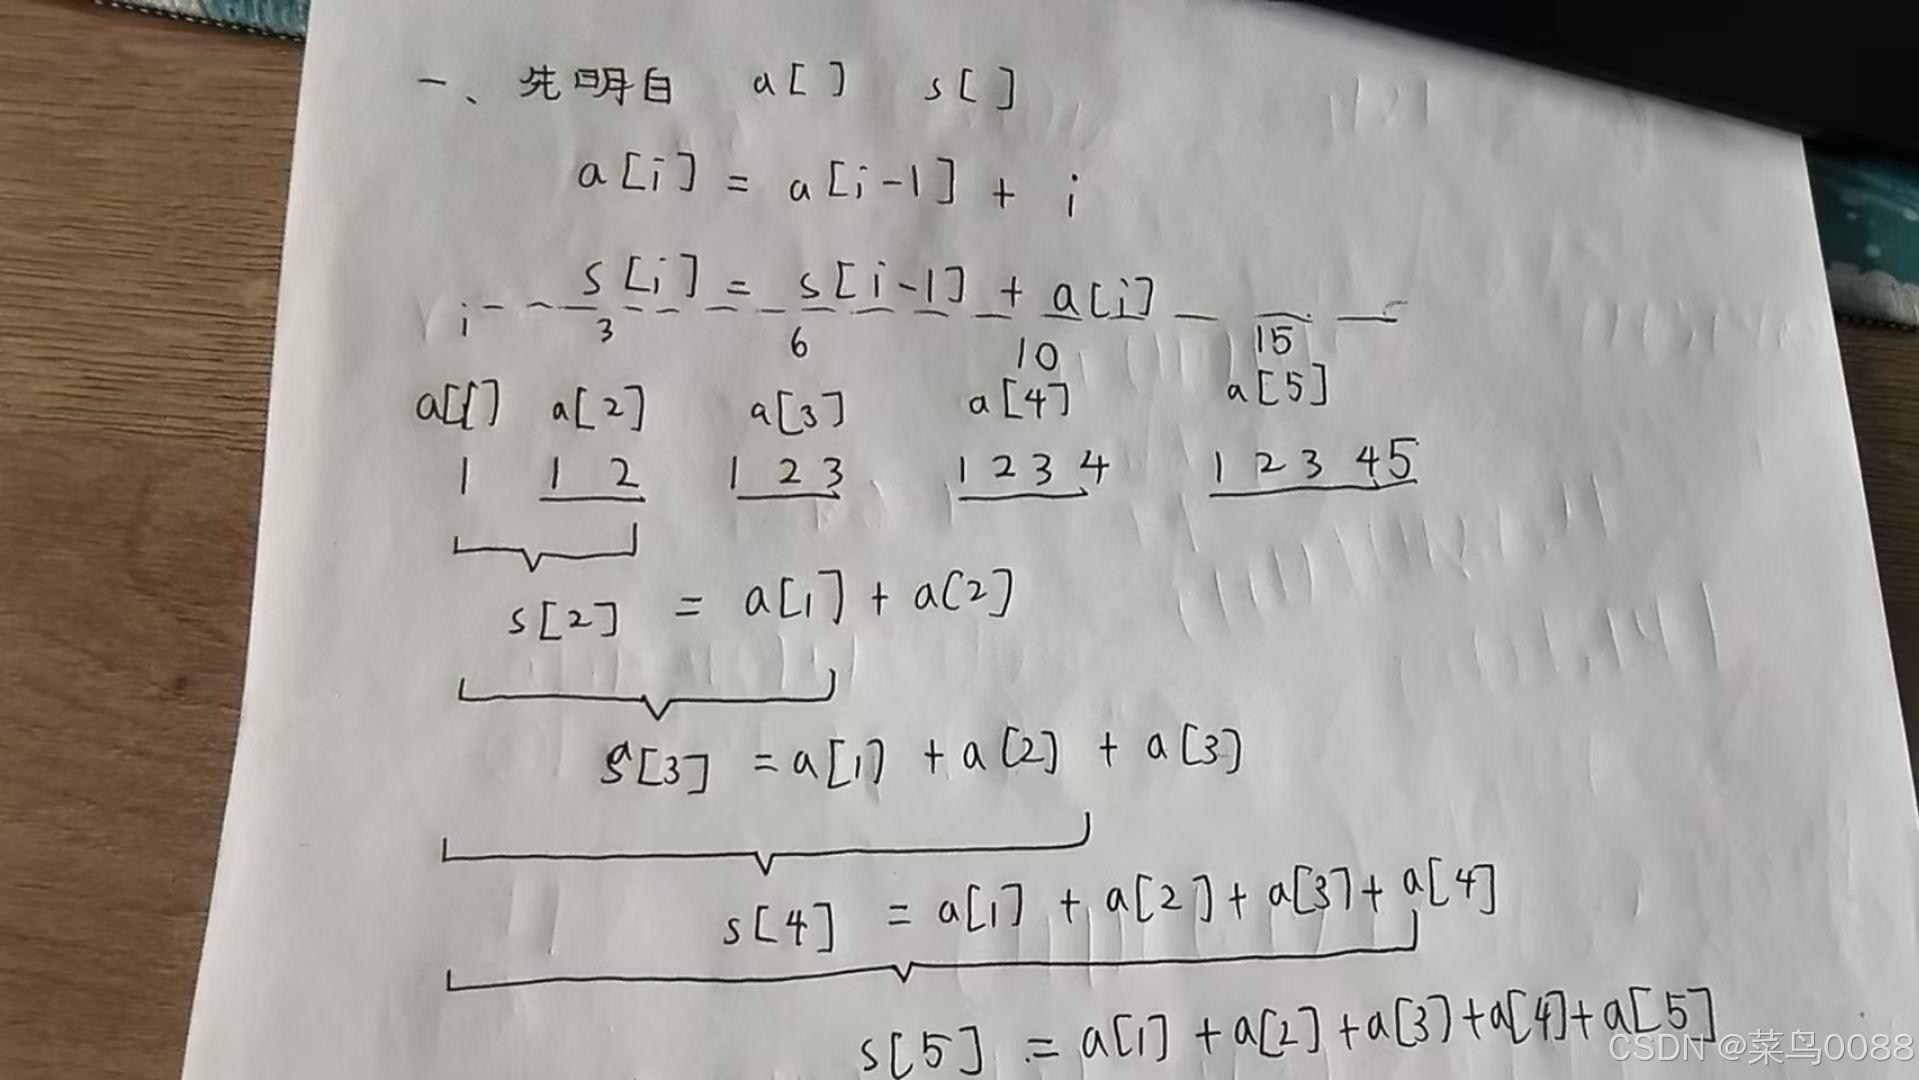 一、先明白 a[] s[]
a[i] = a[i-1] + i
s[i] = s[i-1] + a[i]
1 3 6 10 15
a[1] a[2] a[3] a[4] a[5]
1 1 2 1 2 3 1 2 3 4 1 2 3 4 5
s[2] = a[1] + a[2]
s[3] = a[1] + a[2] + a[3]
s[4] = a[1] + a[2] + a[3] + a[4]
s[5] = a[1] + a[2] + a[3] + a[4] + a[5]
CSDN @菜鸟0088